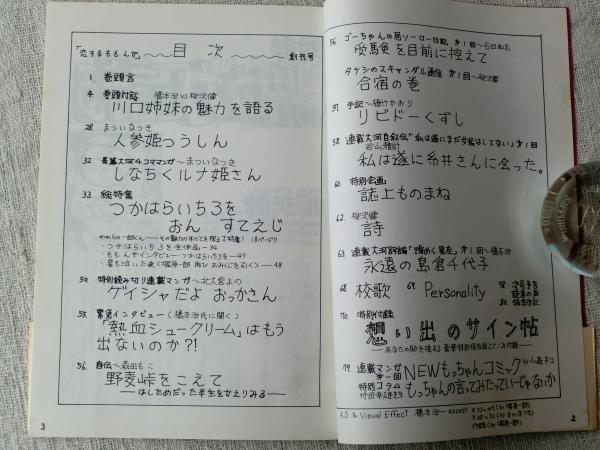 「恋するももんが」 目次 創刊号
1. 巻頭言
4. 巻頭対談 橋本治 vs 柳沢健
川口姉妹の魅力を語る
28. まついなつき
人参姫つうしん
32. 長篇大河4コママンガ〜まついなつき
しなちくルナ姫さん
33. 絵特集
つかはらいち3を
おん すてえじ
われらの一郎くん――その魅力のすべてを探る大特集! 18ページ!!
・つかはらいち3を全作品―34
・ももんがインタビュー・つかはらいち3を―47
50. 特別読み切り連載マンガ〜北大宮よの
ゲイシャだよ おっかさん
53. 緊急インタビュー(橋本治氏に聞く)
「熱血シュークリーム」はもう
出ないのか?!
56. 自伝〜森田もこ
野麦峠をこえて
――はしためだった半生をかえりみる――
3
56. ゴーちゃんの居ソーロー日記 第1回
受験を目前に控えて
タケシのスキャンダル通信 第1回〜柳沢健
合宿の巻
57. 手記
リビドーくずし
58. 連載大河自叙伝「私は遂にまだ女装はしてない」第1回
谷山雅計
私は遂に糸井さんに会った。
60. 特別企画
誌上ものまね
62. 柳沢健
詩
63. 連載大河評論「煌めく星座」第1回〜橋本治
永遠の島倉千代子
68. 校歌 69. Personality
78 次号予告
読者の声
80 編集後記
70. 特別付録
想い出のサイン帖
79. 連載マンガ 第一回 NEWもっちゃんコミック
特別コラム もっちゃんの言ってみたっていーじゃないか
A.D. & Visual Effect 橋本治― except
2